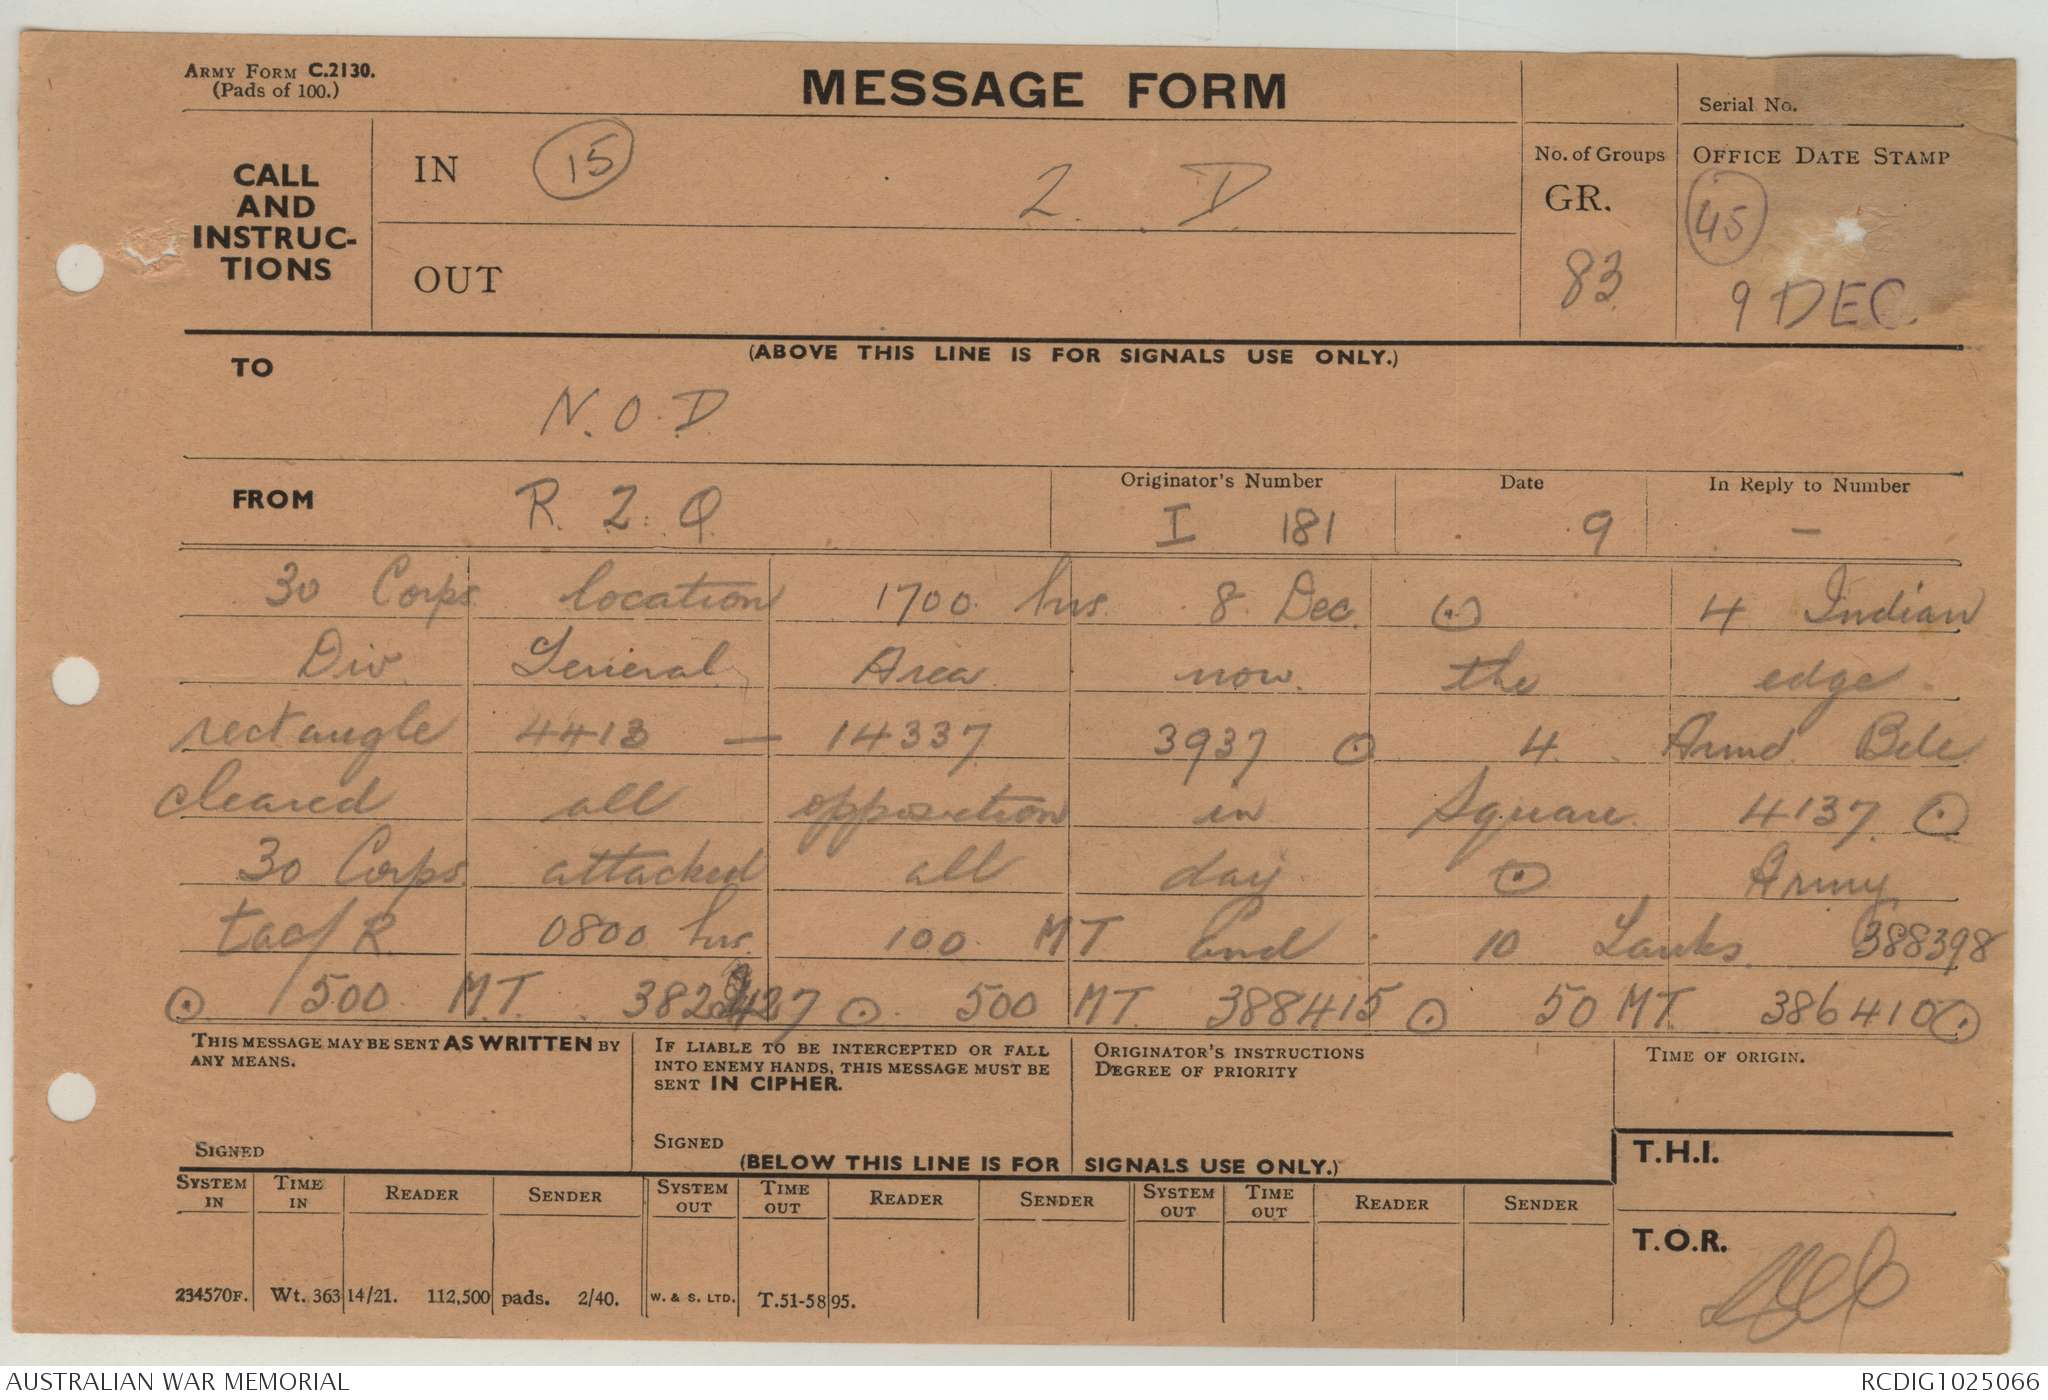 ARMY FORM C.2130.
(Pads of 100.)
MESSAGE FORM
Serial No.
CALL AND INSTRUC-TIONS
IN
(15)
Z. D.
No. of Groups
GR.
83
OFFICE DATE STAMP
(45)
9 DEC.
OUT
(ABOVE THIS LINE IS FOR SIGNALS USE ONLY.)
TO
N.O.D.
FROM
R. Z. Q
Originator's Number
I 181
Date
9
In Reply to Number
-
30 Corps location 1700 hrs. 8 Dec. ⊙ 4 Indian
Div. General Area now the edge
rectangle 4413 — 14337 3937 ⊙ 4. Armd Bde
cleared all opposition in Square 4137. ⊙
30 Corps. attacked all day ⊙ Army
tac/R. 0800 hrs. 100 MT and 10 Tanks 388398
⊙ 1500 M.T. 382427 ⊙ 500 MT. 388415 ⊙ 50 MT. 386410 ⊙
THIS MESSAGE MAY BE SENT AS WRITTEN BY
ANY MEANS.
SIGNED
IF LIABLE TO BE INTERCEPTED OR FALL
INTO ENEMY HANDS, THIS MESSAGE MUST BE
SENT IN CIPHER.
SIGNED
ORIGINATOR'S INSTRUCTIONS
DEGREE OF PRIORITY
TIME OF ORIGIN.
(BELOW THIS LINE IS FOR SIGNALS USE ONLY.)
T.H.I.
SYSTEM IN TIME IN READER SENDER SYSTEM OUT TIME OUT READER SENDER SYSTEM OUT TIME OUT READER SENDER
T.O.R.
234570F. Wt. 36314/21. 112,500 pads. 2/40. W. & S. LTD. T.51-5895.
AUSTRALIAN WAR MEMORIAL
RCDIG1025066